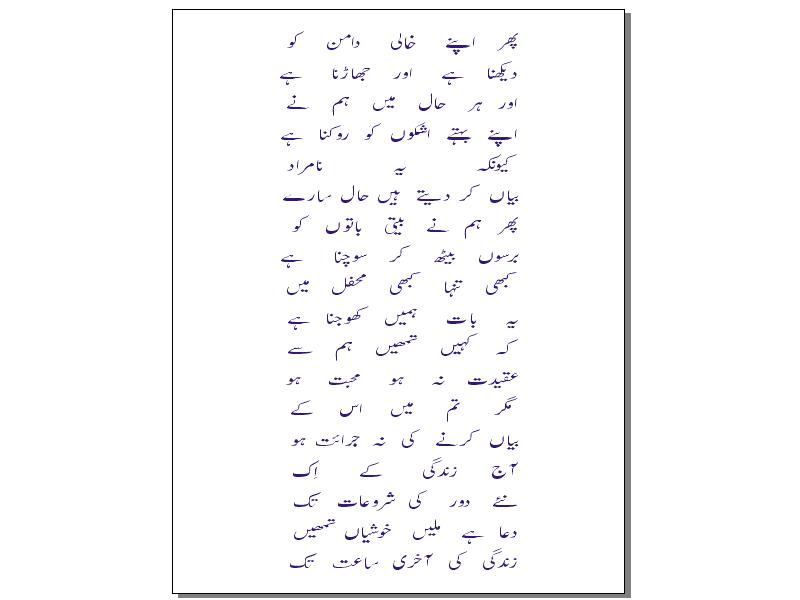 پھر اپنے خالی دامن کو
دیکھنا ہے اور جھاڑنا ہے
اور ہر حال میں ہم نے
اپنے بہتے اشکوں کو روکنا ہے
کیونکہ یہ نامراد
بیاں کر دیتے ہیں حال سارے
پھر ہم نے بیتی باتوں کو
برسوں بیٹھ کر سوچنا ہے
کبھی تنہا کبھی محفل میں
یہ بات ہمیں کھوجنا ہے
کہ کہیں تمھیں ہم سے
عقیدت نہ ہو محبت ہو
مگر تم میں اس کے
بیاں کرنے کی نہ جرائت ہو
آج زندگی کے اِک
نئے دور کی شروعات تک
دعا ہے ملیں خوشیاں تمھیں
زندگی کی آخری ساعت تک